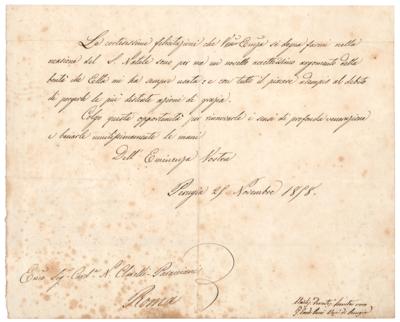 Le cortesissime felicitazioni che Vra Emza si degna farmi nella
occasione del S. Natale sono per me un novello accettissimo argomento della
bontà che Ella mi ha sempre usata: e con tutto il piacere adempio al debito
di porgerle le più distinte azioni di grazia.
Colgo questa opportunità per rinnovarle i sensi di profonda venerazione
e baciarle umilissimamente le mani
Dell' Eminenza Vostra
Perugia 25 Novembre 1858.
Emo Sig. Card. Clarelli Paracciani
Roma